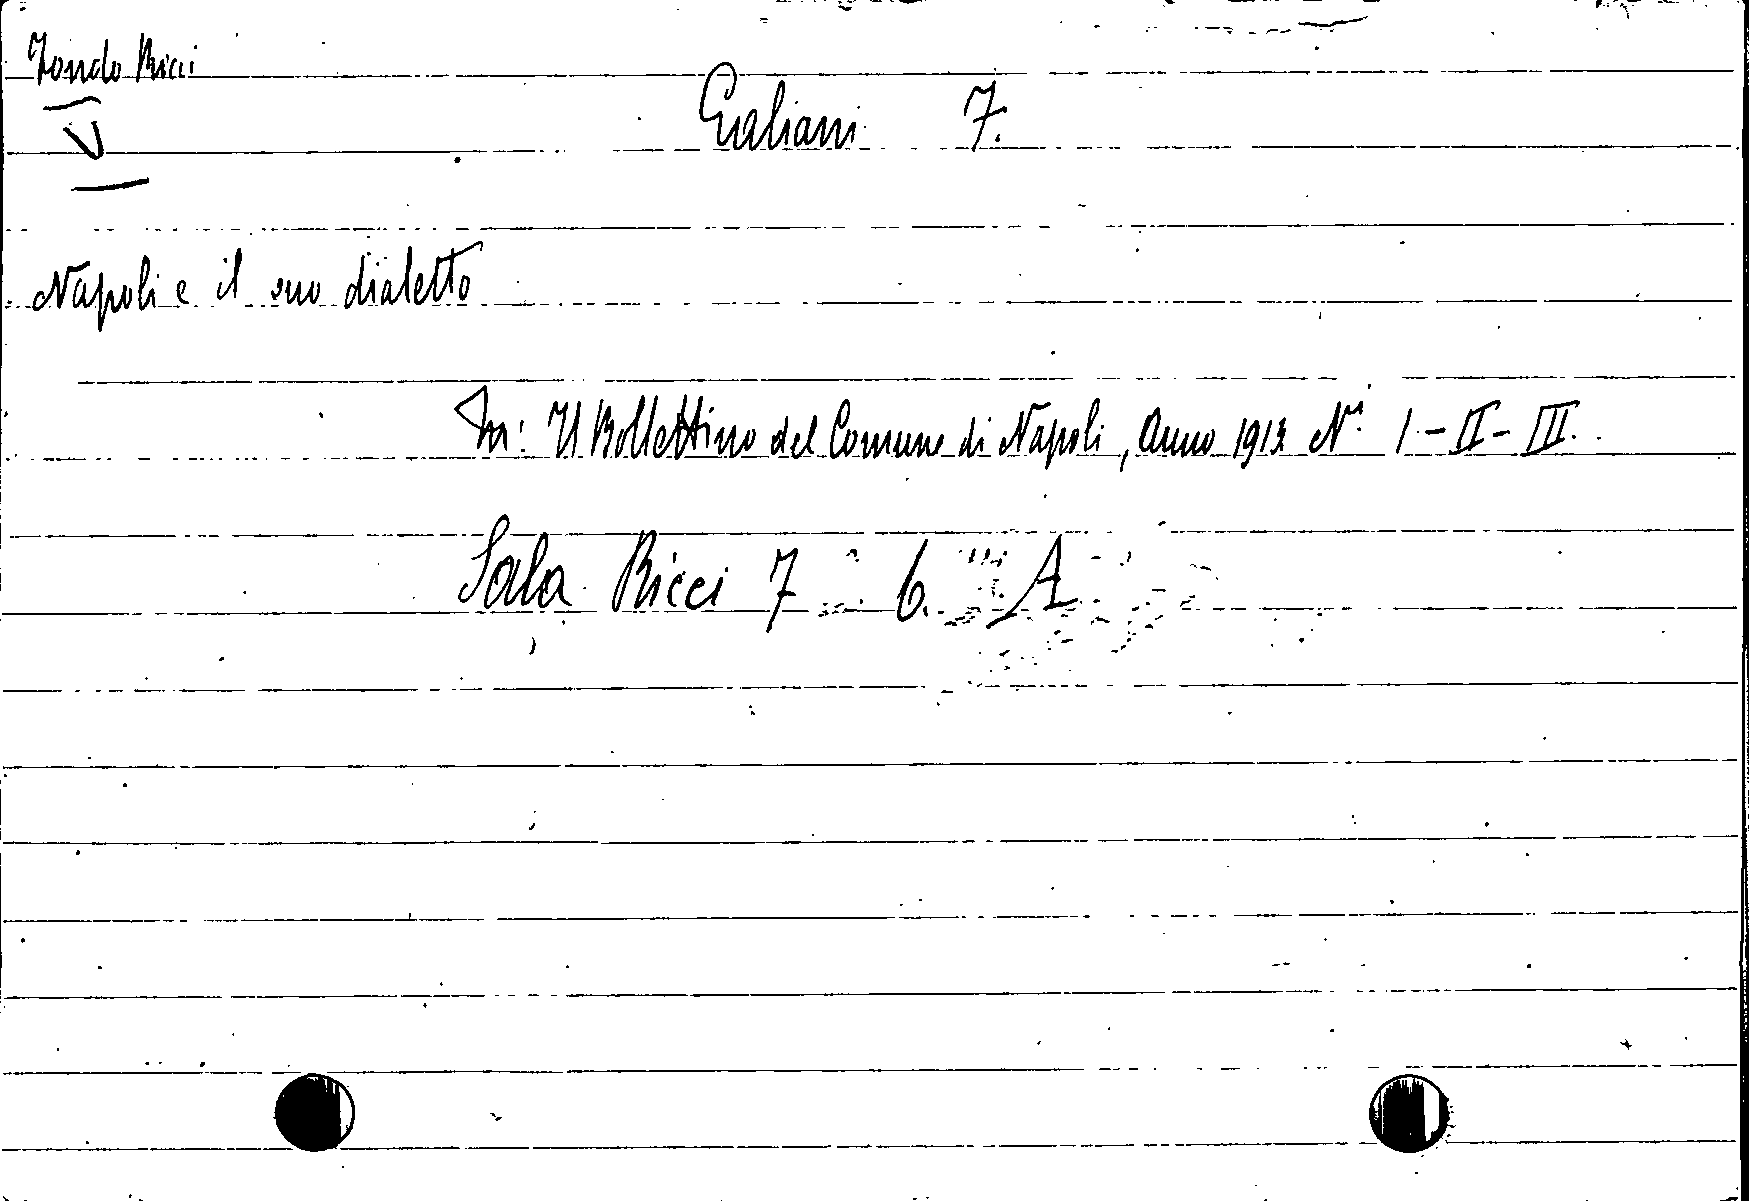 Fondo Ricci
V
Galiani F.
Napoli e il suo dialetto
In: Il Bollettino del Comune di Napoli, Anno 1913 Nⁱ I - II - III.
Sala Ricci 7 6. A